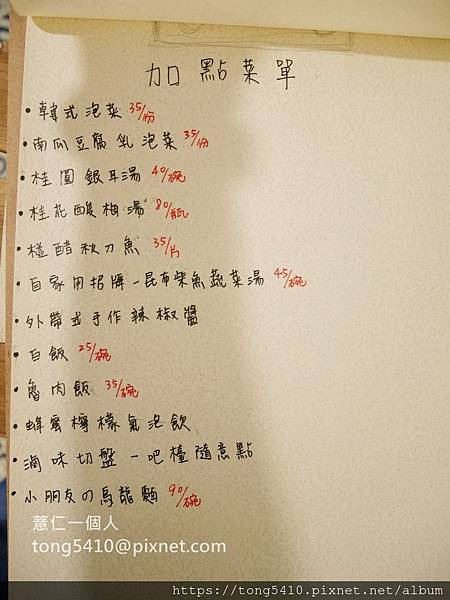 加點菜單
• 韓式泡菜 35/份
• 南瓜豆腐乳泡菜 35/份
• 桂圓銀耳湯 40/碗
• 桂花酸梅湯 80/瓶
• 梅醋秋刀魚 35/片
• 自家用招牌-昆布柴魚蔬菜湯 45/碗
• 外帶式手作辣椒醬
• 白飯 25/碗
• 魯肉飯 35/碗
• 蜂蜜檸檬氣泡飲
• 滷味切盤-吧檯隨意點
• 小朋友の烏龍麵 90/碗
薏仁一個人
tong5410@pixnet.com
https://tong5410.pixnet.net/album